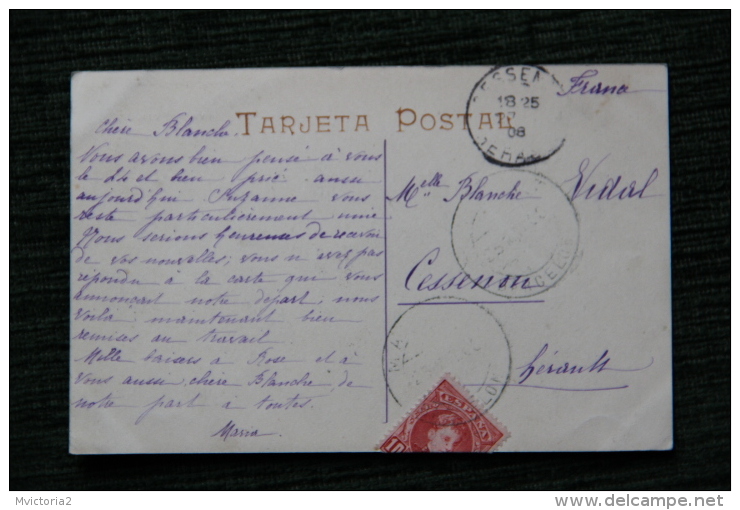 TARJETA POSTAL
Chère Blanche.
Nous avons bien pensé à vous
le 24 et bien prié aussi
aujourd'hui Suzanne vous
reste particulièrement unie
Nous serions heureuses de recevoir
de vos nouvelles; vous n'avez pas
répondu à la carte qui vous
annonçait notre départ; nous
voilà maintenant bien
remises au travail
Mille baisers à Rose et à
vous aussi, chère Blanche, de
notre part à toutes.
Maria.
France
Melle Blanche Vidal
Cessenon
Hérault
CESSEN
18 25
08
HERA
CELON
ESPAÑA
10
Mvictoria2
www.delcampe.net